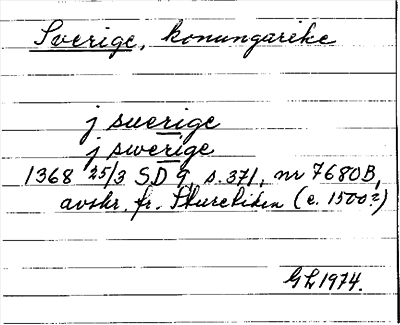 Sverige, konungarike
j suerige
j swerige
1368 25/3 SD 9, s. 371, nr 7680B,
avskr. fr. Skureboken (c. 1500?)
GL 1974.